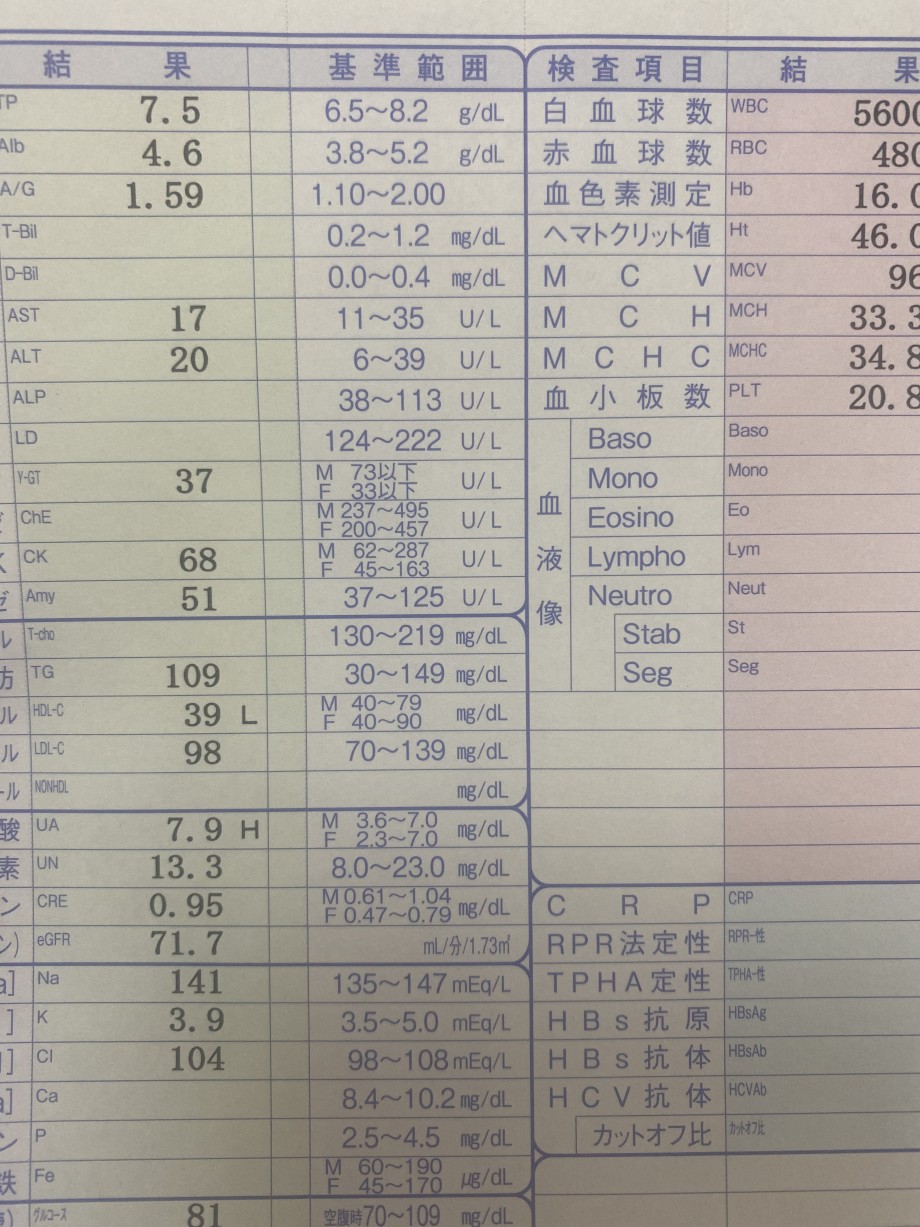 結 果 基準範囲 検査項目 結 果
TP 7.5 6.5〜8.2 g/dL 白血球数 WBC 5600
Alb 4.6 3.8〜5.2 g/dL 赤血球数 RBC 480
A/G 1.59 1.10〜2.00 血色素測定 Hb 16.0
T-Bil 0.2〜1.2 mg/dL ヘマトクリット値 Ht 46.0
D-Bil 0.0〜0.4 mg/dL MCV MCV 96
AST 17 11〜35 U/L MCH MCH 33.3
ALT 20 6〜39 U/L MCHC MCHC 34.8
ALP 38〜113 U/L 血小板数 PLT 20.8
LD 124〜222 U/L 血液像 Baso Baso
γ-GT 37 M 73以下 F 33以下 U/L Mono Mono
ChE M 237〜495 F 200〜457 U/L Eosino Eo
CK 68 M 62〜287 F 45〜163 U/L Lympho Lym
ゼ Amy 51 37〜125 U/L Neutro Neut
ル T-cho 130〜219 mg/dL Stab St
肪 TG 109 30〜149 mg/dL Seg Seg
ル HDL-C 39 L M 40〜79 F 40〜90 mg/dL
ル LDL-C 98 70〜139 mg/dL
ール NONHDL mg/dL
酸 UA 7.9 H M 3.6〜7.0 F 2.3〜7.0 mg/dL
素 UN 13.3 8.0〜23.0 mg/dL
ン CRE 0.95 M 0.61〜1.04 F 0.47〜0.79 mg/dL CRP CRP
ン) eGFR 71.7 mL/分/1.73㎡ RPR法定性 RPR-性
a] Na 141 135〜147 mEq/L TPHA定性 TPHA-性
] K 3.9 3.5〜5.0 mEq/L HBs抗原 HBsAg
] Cl 104 98〜108 mEq/L HBs抗体 HBsAb
a] Ca 8.4〜10.2 mg/dL HCV抗体 HCVAb
ン P 2.5〜4.5 mg/dL カットオフ比 カットオフ比
鉄 Fe M 60〜190 F 45〜170 μg/dL
) グルコース 81 空腹時70〜109 mg/dL